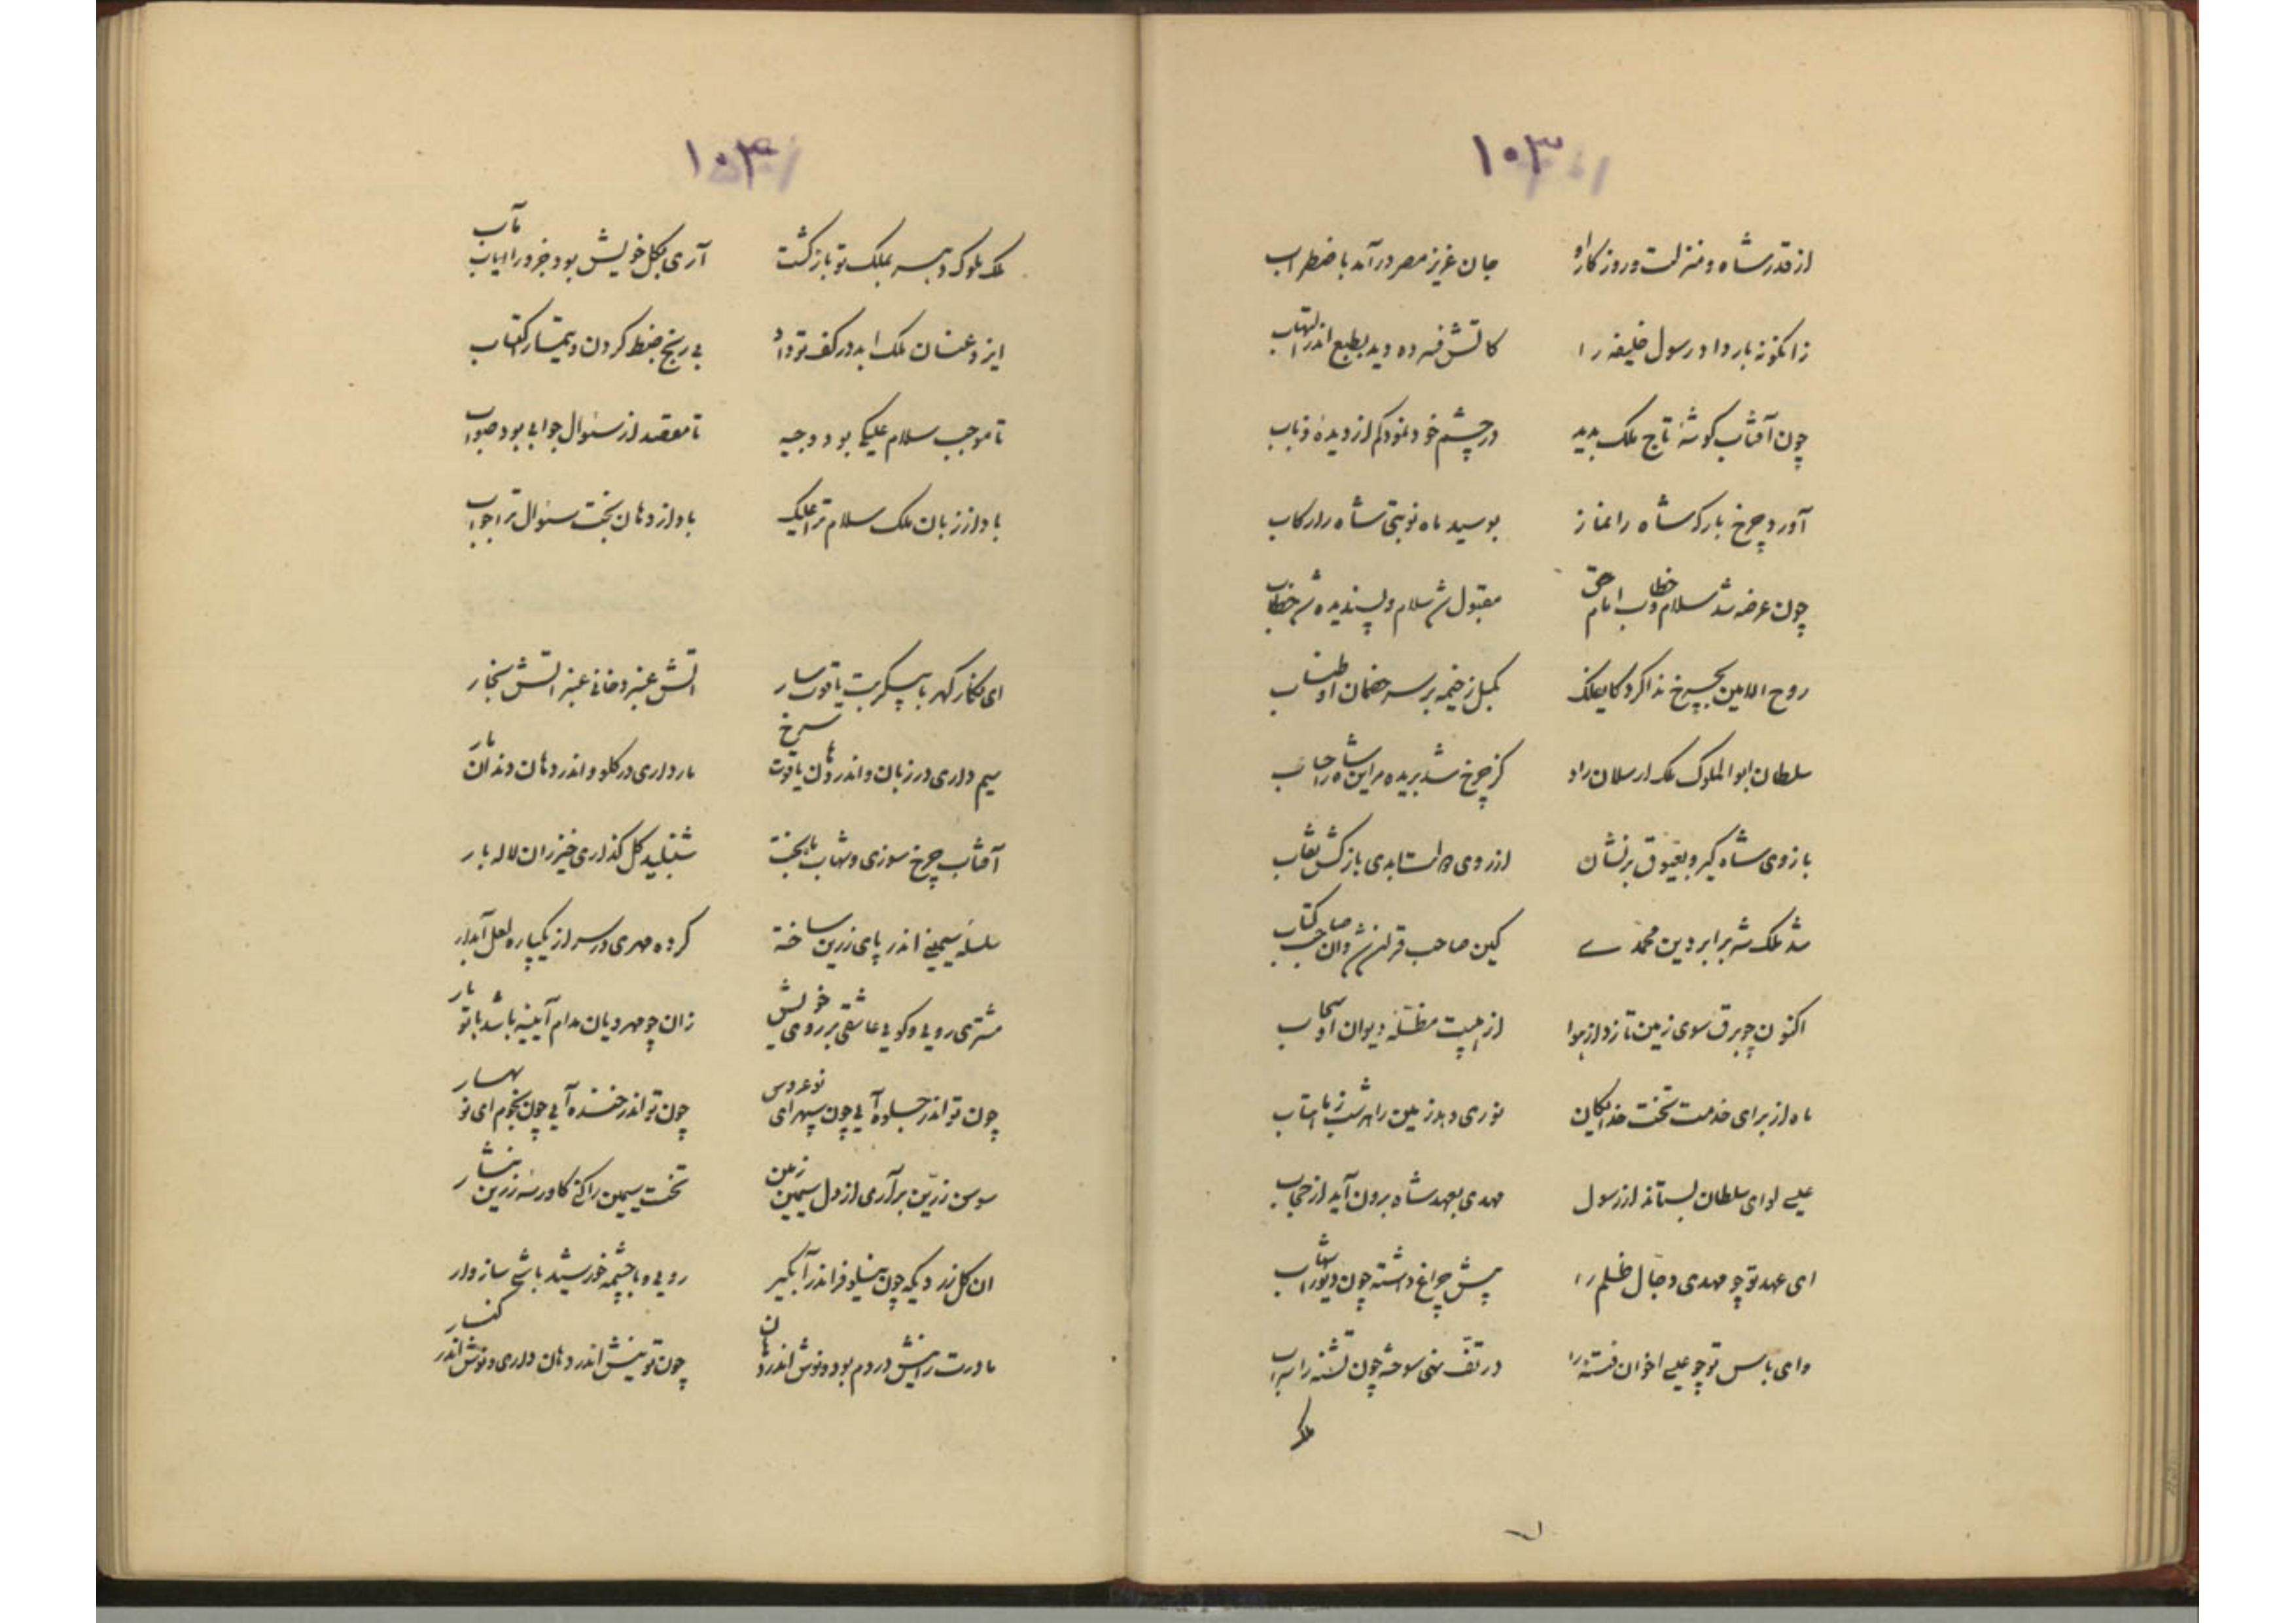 ۱۰۳
از قدر شاه و منزلت و روز کار او جان عزیز مصر درآمد باضطراب
زانگونه بار داد رسول خلیفه را کاتش فسرده دید بطبع اندر التهاب
چون آفتاب کوشهٔ تاج ملک بدید در چشم خود نمود کم از دیدهٔ ذباب
آورد چرخ بارکه شاه را نماز بوسید ماه نوبتی شاه را رکاب
چون عرضه شد سلام و خطاب امام حق مقبول شد سلام و پسندیده شد خطاب
روح الامین بچرخ ندا کرد کای فلک بکسل ز خیمه بر سر خصمان او طناب
سلطان ابوالملوک ملک ارسلان راد کز چرخ شد بریده مر این شاه را حجاب
بازوی شاه کیر و بعیوق برنشان از روی ابدی باز کش نقاب
شد ملک شه برابر دین محمدی کین صاحب قران شد و آن صاحب کتاب
اکنون چو برق سوی زمین تازد از هوا از هیبت مظلهٔ دیوان او سحاب
ماه از برای خدمت تخت خدایکان نوری دهد زمین را هر شب ز ماهتاب
عیسی لوای سلطان بستاند از رسول مهدی بعهد شاه برون آید از حجاب
ای عهد تو چو مهدی دجال ظلم را پیش چراغ داشته چون دیو را شهاب
وای باس تو چو عیسی اخوان فتنه را در تف نهی سوخته چون تشنه را سراب
ملک
۱۰۴
ملک ملوک دهر بملک تو بازکشت آری بکل خویش بود جزو را ایاب مآب
ایزد عنان ملک ابد در کف تو داد بی رنج ضبط کردن و تیمار اکتساب
تا موجب سلام علیکی بود وجیه تا مقصد از سئوال جوابی بود صواب
باد از زبان ملک سلام ترا علیک باد از دهان بخت سئوال ترا جواب
ای نکار کهربا پیکر بت یاقوت سار آتش عنبر دخانی عنبر آتش بخار
سیم داری در زبان و اندر دهان یاقوت سرخ مار داری در کلو و اندر دهان دندان مار
آفتاب چرخ سوزی و شهاب شنبلید کل کذاری خیزران لاله بار
سلسلهٔ سیمین اندر پای زرین ساخته کرده مهری در سر از یکپاره لعل آبدار
مشتری رویی و کویی عاشقی بر روی خویش زان چو مهرویان مدام آیینه باشد با تو یار
چون تو اندر جلوه آیی چون سپهر ای نو عروس چون تو اندر خنده آیی چون نجوم ای نو بهار
سوسن زرین برآری از دل سیمین زمین تخت سیمین را کنی کاورسهٔ زرین نثار
ان کل زر دیکه چون نیلوفر اندر آبکیر رویی و با چشمه خورشید باشی سازوار
مادرت را نیش در دم بود و نوش اندر دهان چون تو نیش اندر دهان داری و نوش اندر کنار